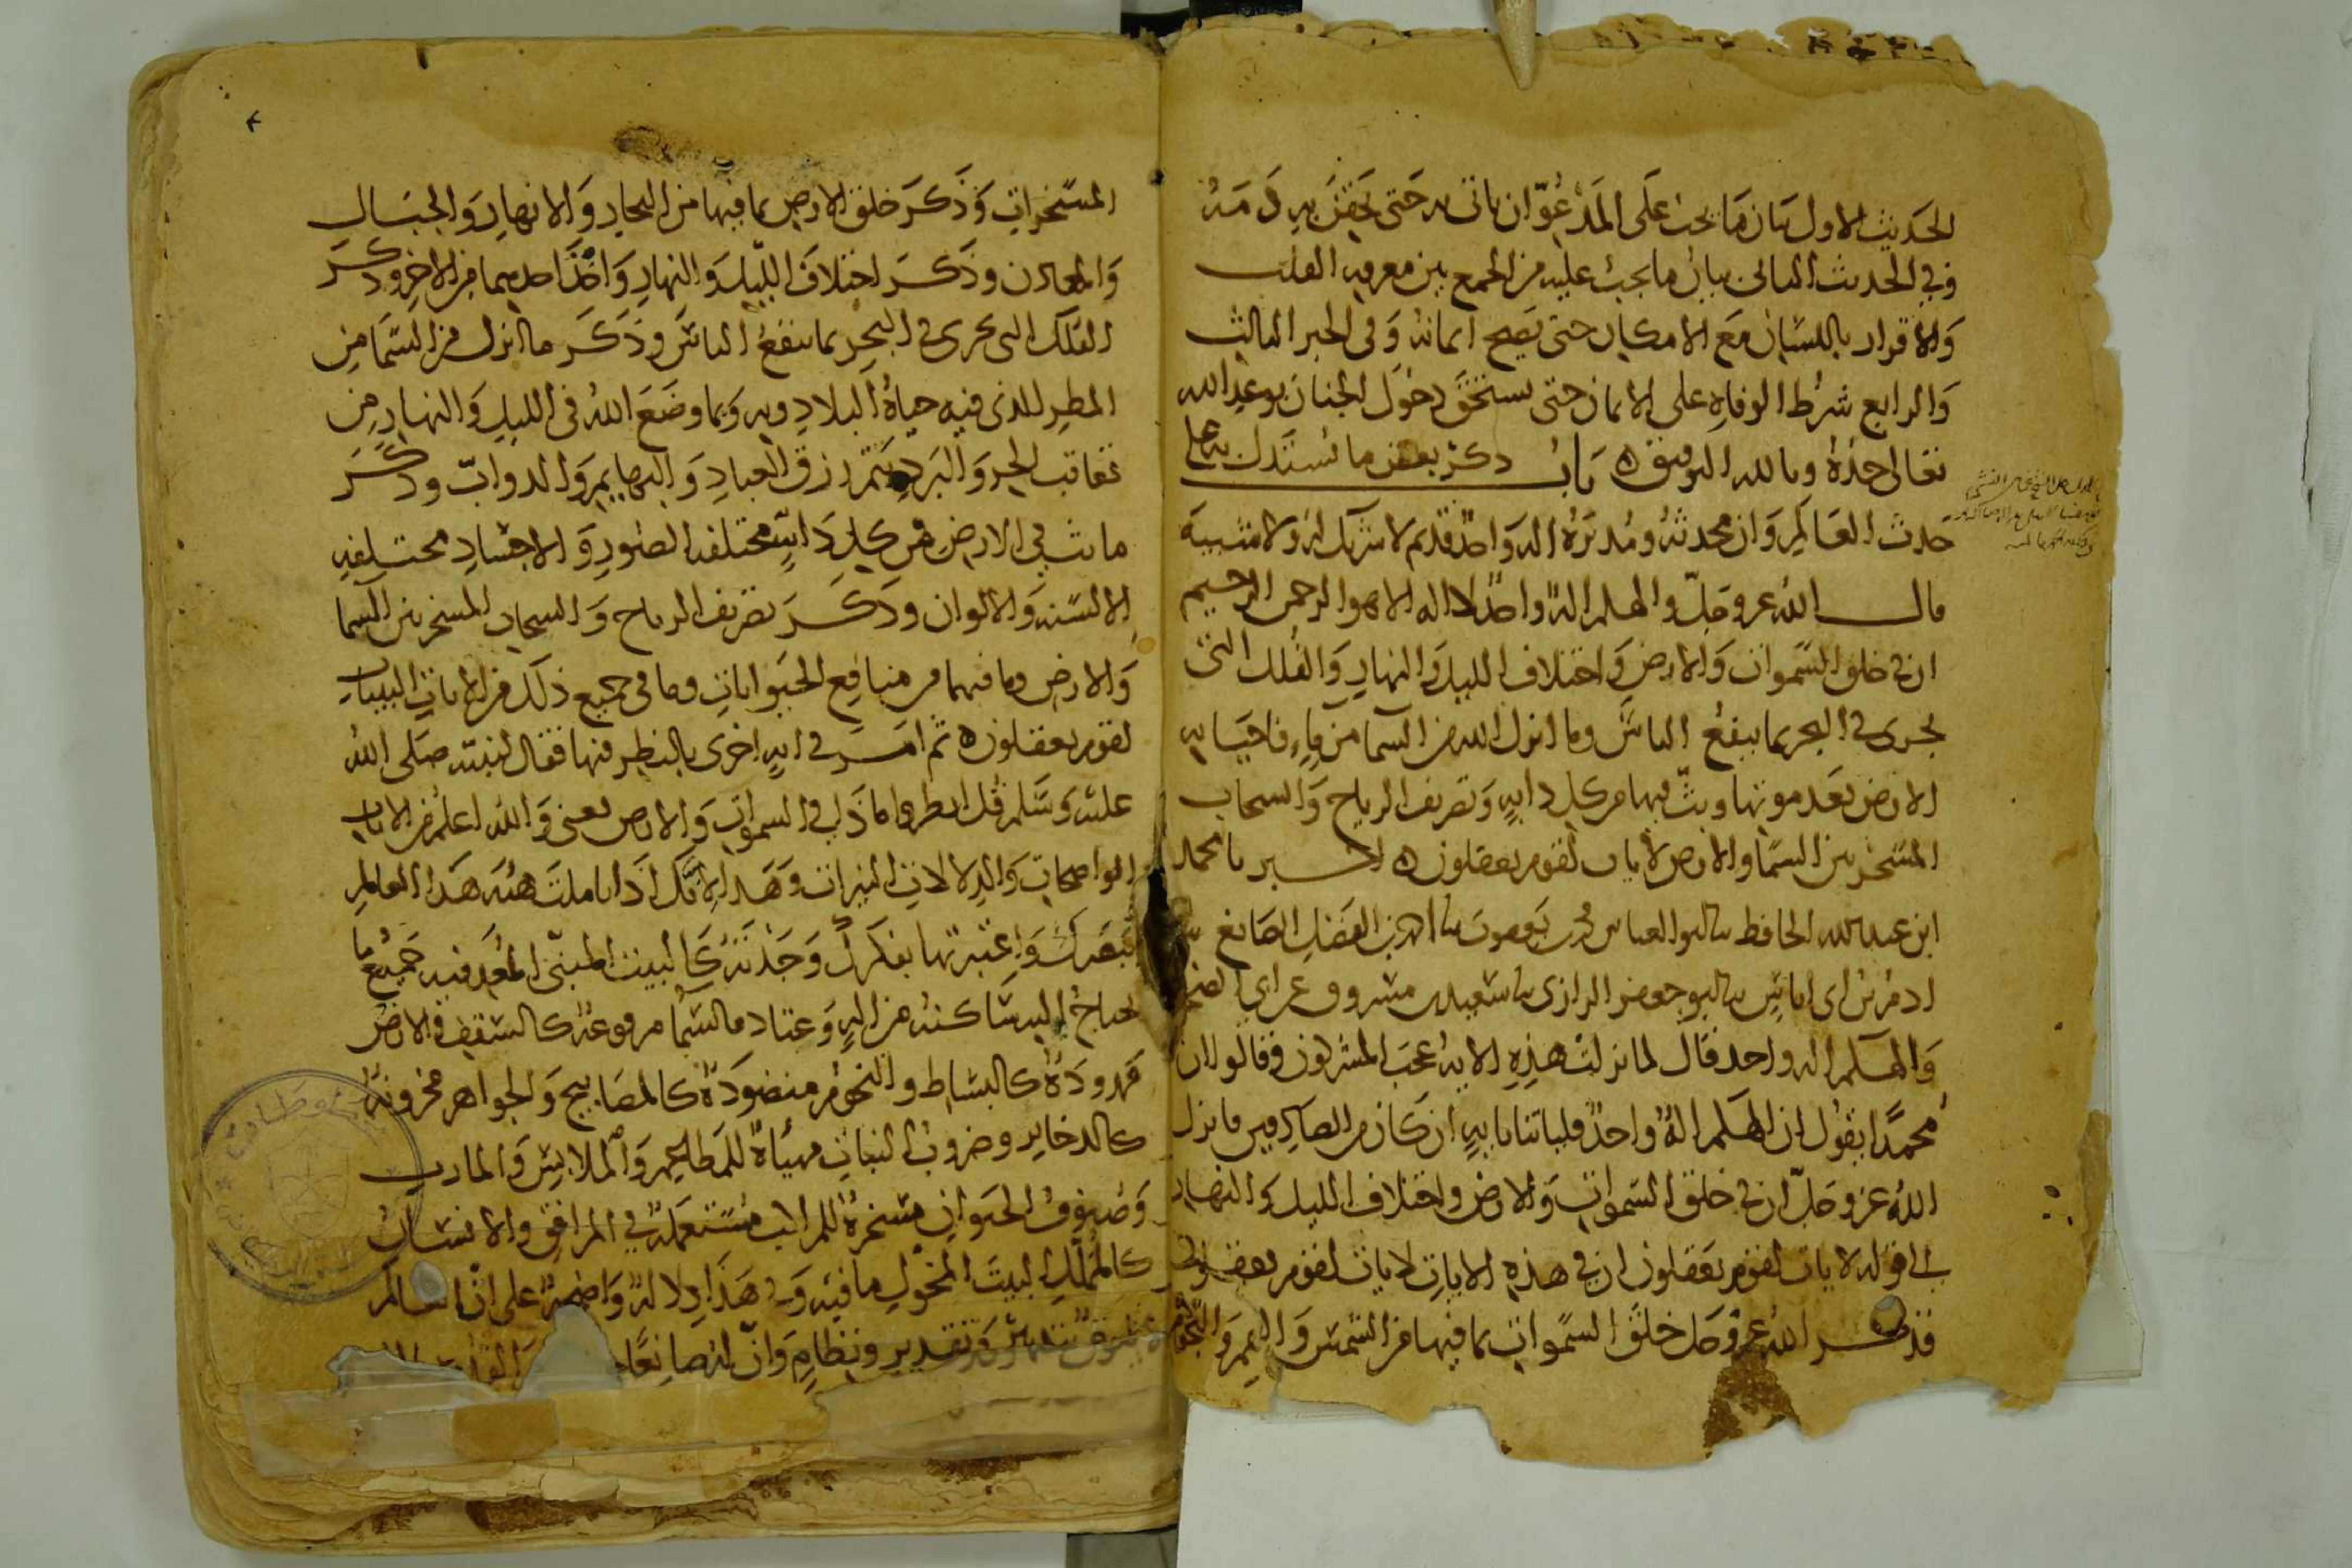 الحديث الاول بيان ما يجب على المدعو ان ياتي به حتى يحقن به دمه
وفي الحديث الثاني بيان ما يجب عليه من الجمع بين معرفه القلب
والاقرار باللسان مع الامكان حتى يصح ايمانه وفي الخبر الثالث
والرابع شرط الوفاه على الايمان حتى يستحق دخول الجنان بوعد الله
تعالى جده وبالله التوفيق ه باب ذكر بعض ما يستدل به على
حدث العالم وان محدثه ومدبره اله واحد قديم لا شريك له ولا شبيه
قال الله عز وجل والهكم اله واحد لا اله الا هو الرحمن الرحيم
ان في خلق السموات والارض واختلاف الليل والنهار والفلك التي
تجري في البحر بما ينفع الناس وما انزل الله من السما من ماء فاحيا به
الارض بعد موتها وبث فيها من كل دابه وتصريف الرياح والسحاب
المسخر بين السما والارض لايات لقوم يعقلون ه محمد
ابن عبد الله الحافظ ابو العباس محمد بن يعقوب بن الفضل الصايغ
ادم بن ابي اياس ابو جعفر الرازي سعيد بن مسروق عن ابي الضحى
والهكم اله واحد قال لما نزلت هذه الايه عجب المشركون وقالوا ان
محمدا يقول ان الهكم اله واحد فلياتنا بايه ان كان من الصادقين فانزل
الله عز وجل ان في خلق السموات والارض واختلاف الليل والنهار
الى قوله لايات لقوم يعقلون ان في هذه الايات لايات لقوم يعقلون
فذكر الله عز وجل خلق السموات بما فيها من الشمس والقمر والنجوم
المسخرات وذكر خلق الارض بما فيها من البحار والانهار والجبال
والمعادن وذكر اختلاف الليل والنهار واخذ احدهما من الاخر وذكر
الفلك التي تجري في البحر بما ينفع الناس وذكر ما انزل من السما من
المطر الذي فيه حياه البلاد وبه وبما وضع الله في الليل والنهار من
تعاقب الحر والبرد يتم رزق العباد والبهايم والدواب وذكر
ما بث في الارض من كل دابه مختلفه الصور والاجساد مختلفه
الالسنه والالوان وذكر تصريف الرياح والسحاب المسخر بين السما
والارض وما فيهما من منافع الحيوانات وما في جميع ذلك من الايات البينات
لقوم يعقلون ه ثم امر في ايه اخرى بالنظر فيها فقال لنبيه صلى الله
عليه وسلم قل انظروا ماذا في السموات والارض يعني والله اعلم من الايات
الواضحات والدلالات النيرات وهذا لانك اذا تاملت هيئه هذا العالم
ببصرك واعتبرتها بفكرك وجدته كالبيت المبني المعد فيه جميع ما
يحتاج اليه ساكنه من اله وعتاد فالسما مرفوعه كالسقف والارض
ممدوده كالبساط والنجوم منضوده كالمصابيح والجواهر مخزونه
كالدخاير وضروب النبات مهياه للمطاعم والملابس والمارب
وصنوف الحيوان مسخره للمراكب مستعمله في المرافق والانسان
كالمملك البيت المخول ما فيه وفي هذا دلاله واضحه على ان العالم
مخلوق بتدبير وتقدير ونظام وان له صانعا